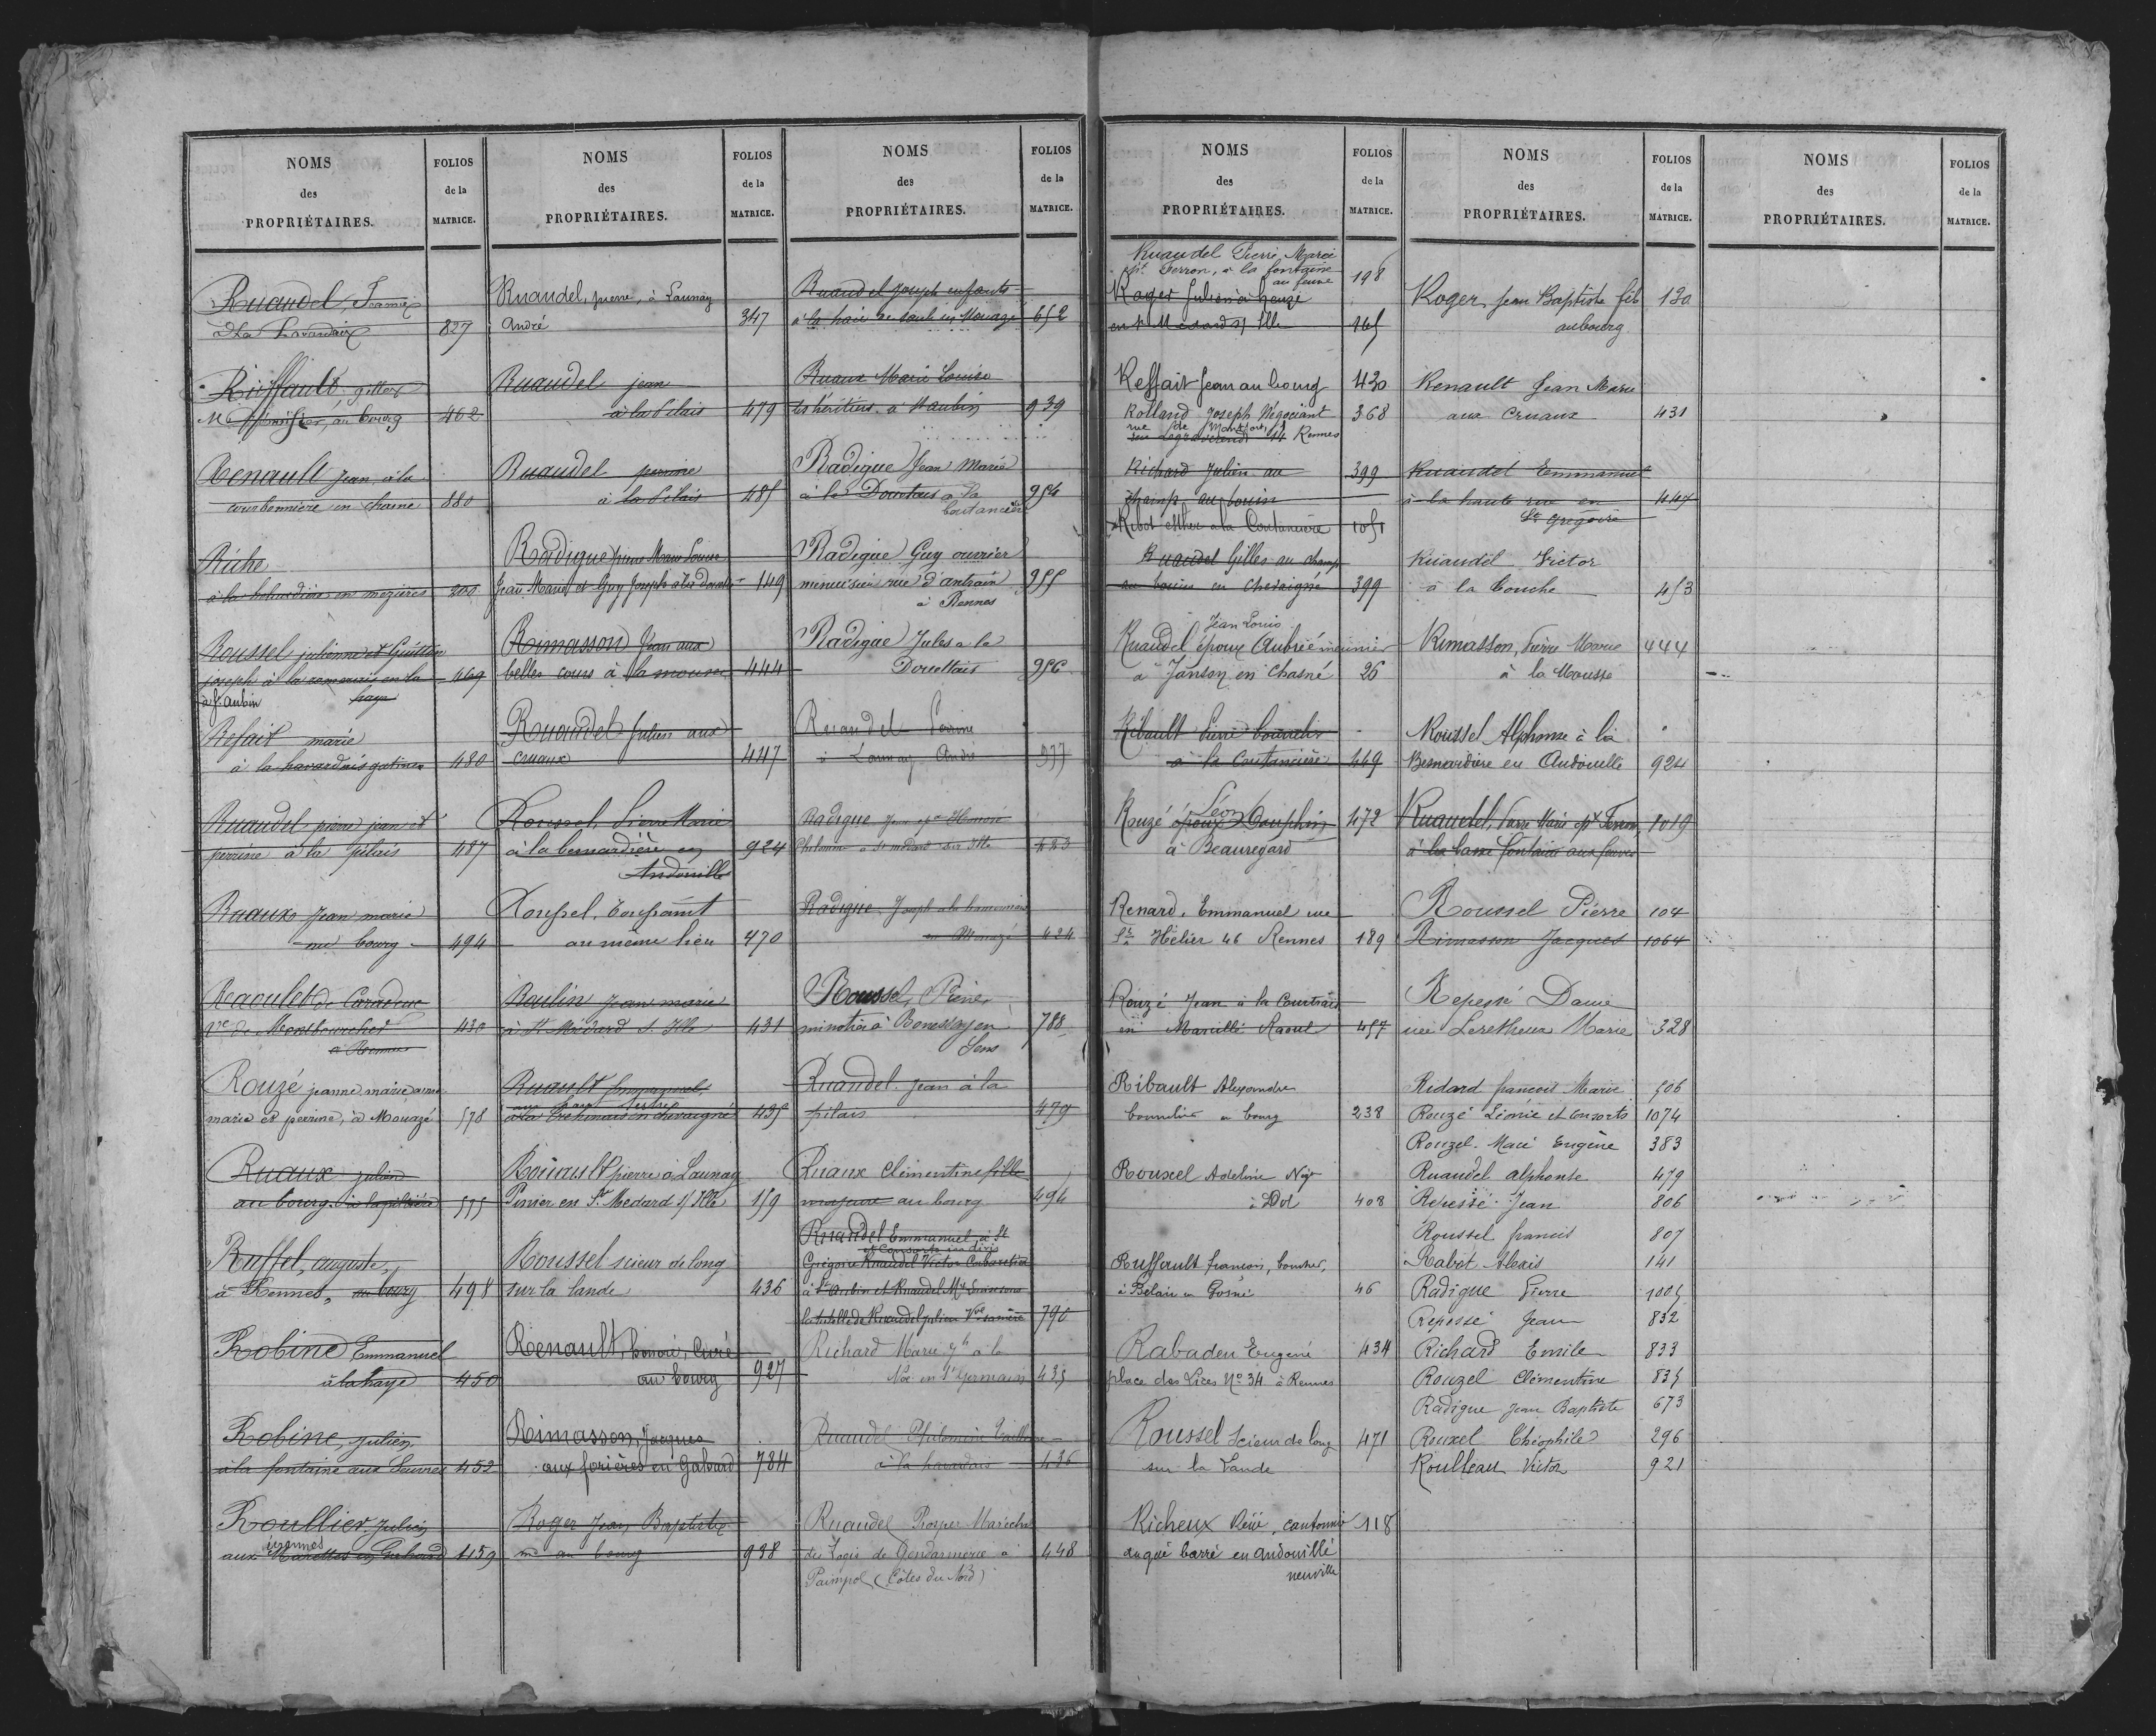 NOMS
des
PROPRIÉTAIRES.
FOLIOS
de la
MATRICE.
Ruandel, Jeanne
à la Havardais 827
Rieffault, gilles
Md épicier, au bourg 462
Renault Jean à la
courbonnière en chasné 880
Riche
à la en mézières 200
Roussel julienne et Guillou
joseph à la en la 469
à St. Aubin haye
Refait marie
à la havardais gatines 480
Ruaudel pierre jean et
perrine à la pilais 487
Ruaux Jean marie
au bourg 494
Raoulet de Caradeuc
Vve de Montbourcher 430
à Rennes
Rouzé jeanne marie anne
marie et perrine, à Mouazé 578
Ruaux julien
au bourg 555
Ruffel, auguste,
à Rennes, au bourg 498
Robine Emmanuel
à la haye 450
Robine, julien
à la fontaine aux Feuvres 452
Roullier Julien
aux 1159
NOMS
des
PROPRIÉTAIRES.
FOLIOS
de la
MATRICE.
Ruaudel, pierre, à Launay
André 347
Ruaudel jean
à la Pilais 479
Ruaudel perrine
à la Pilais 485
Radigue pierre Marie Louise
Jean Marie et Guy Joseph à les 149
Rimasson Jean aux
belles cours à la mousse 444
Ruaudel Julien aux
cruaux 447
Roussel, Pierre Marie
à la bernardière en 924
Andouillé
Roussel, Toussaint
au même lieu 470
Raulin Jean marie
à St Médard s. Ille 431
Ruault
en chevaigné 435
Roinault pierre à Launay
Pinier en St. Medard s/ Ille 159
Roussel scieur de long
sur la lande 436
Renault, honoré, Curé
au bourg 927
Rimasson, Jacques
aux forières en Gahard 784
Roger Jean Baptiste
md au bourg 938
NOMS
des
PROPRIÉTAIRES.
FOLIOS
de la
MATRICE.
Ruaudel Joseph enfants
à la haie de en Mouazé 652
Ruaux Marie Louise
les héritiers à St aubin 939
Radigue Jean Marie
à la Douettais à la 954
Coutancière
Radigue Guy ouvrier
menuisier rue d'antrain 955
à Rennes
Radigue Jules à la
Douettais 956
Ruaudel Perrine
à Launay André 977
Radigue Honoré
à St médard sur Ille 423
Radigue Joseph à la
en Mouazé 424
Roussel, Pierre
minotier à Bonessay en 788
Sens
Ruaudel jean à la
pilais 479
Ruaux Clémentine fille
majeure au bourg 494
Ruaudel Emmanuel, à St
et Consorts indivis
Grégoire Ruaudel Victor Cabaretier
à St Aubin et Ruaudel Mie Louise sous
la tutelle de Ruaudel julien 790
Richard Marie à la
Noë en St Germain 435
Ruaudel Philomène
à la havardais 436
Ruaudel Prosper Maréchal
des Logis de Gendarmerie à 448
Paimpol (Côtes du Nord)
NOMS
des
PROPRIÉTAIRES.
FOLIOS
de la
MATRICE.
Ruaudel Pierre Marie
ept Ferron, à la fontaine
au feuvre 198
Roger Julien à heuzé
en St Médard s/ Ille 165
Reffait Jean au bourg 430
Rolland Joseph Négociant 368
rue de Montfort,
rue Legraverend 14 Rennes
Richard Julien au 399
champ au bouin
Ribot esther à la Coutancière 1051
Ruaudel Gilles au champ
au bouin en Chevaigné 399
Jean Louis
Ruaudel époux Aubrée meunier
à Janson en Chasné 26
Ribault Pierre bourrelier
à la Coutancière 449
Léon
Rouzé époux Dauphin 472
à Beauregard
Renard, Emmanuel rue
St Hélier 46 Rennes 189
Rouzé Jean à la Courtrais
en Marcillé Raoul 457
Ribault Alexandre
bourrelier au bourg 238
Rouxel Adeline Négte
à Dol 408
Ruffault François, boucher,
à Belair en Gosné 46
Rabadeu Eugène 434
place des Lices No 34 à Rennes
Roussel Scieur de long 471
sur la Lande
Richeux René, cantonnier 118
au gué barré en andouillé
neuville
NOMS
des
PROPRIÉTAIRES.
FOLIOS
de la
MATRICE.
Roger Jean Baptiste fils 130
au bourg
Renault Jean Marie
aux Cruaux 431
Ruaudel Emmanuel
à la haute rue en 447
St Grégoire
Ruaudel Victor
à la Couche 453
Rimasson, Pierre Marie 444
à la Mousse
Roussel Alphonse à la
Bernardière en Andouillé 924
Ruaudel, Pierre Marie ept Ferron, 1019
à la basse fontaine aux feuvres
Roussel Pierre 104
Rimasson Jacques 1064
Repessé Dame
née Leretheux Marie 328
Ridard françois Marie 506
Rouzé Léonie et Consorts 1074
Rouzel Macé Eugène 383
Ruaudel alphonse 479
Repessé Jean 806
Roussel francis 807
Rabot Alexis 141
Radigue Pierre 1005
Repessé Jean 832
Richard Emile 833
Rouzel Clémentine 835
Radigue Jean Baptiste 673
Rouxel Théophile 296
Roulleau Victor 921
NOMS
des
PROPRIÉTAIRES.
FOLIOS
de la
MATRICE.